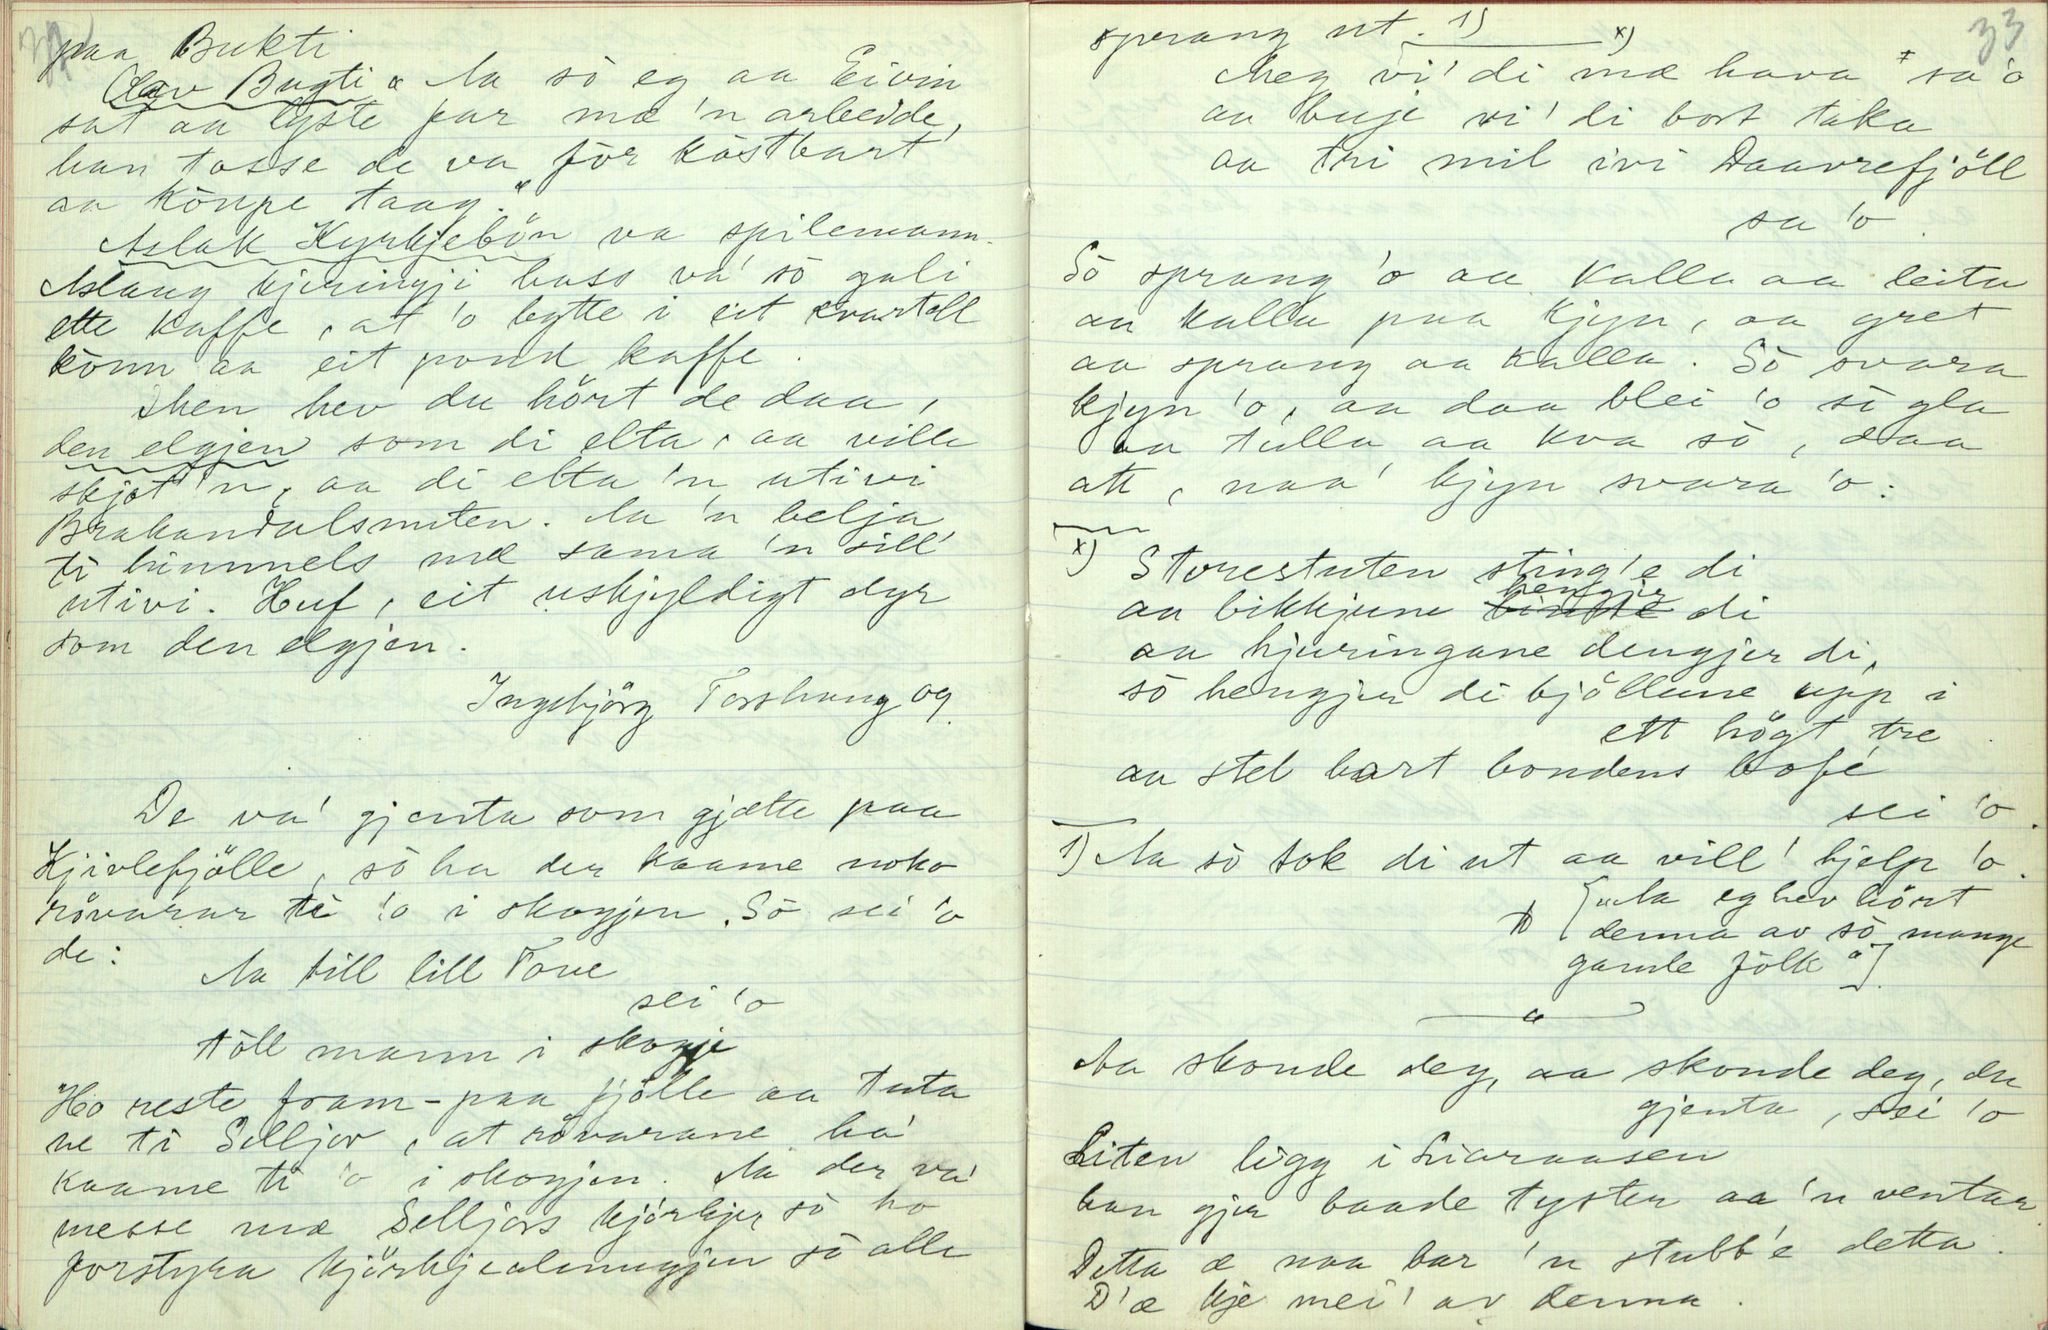 paa Bukti
Olav Bugti " Aa sò eg aa Eivin
sat aa lyste par mæ 'n arbeidde,
han tosse de va før kòstbart
aa kòupe taag."
Aslak Kyrkjebön va spilemann.
Aslaug kjeringji hass va' sò gali
ette kaffe, at 'o bytte i eit kvartell
könn aa eit pond kaffe.
Men hev du hört de daa,
den elgjen som di elta, aa ville
skjot 'n, aa di elta 'n utivi
Brakandalsnuten. Aa 'n belja
ti himmels mæ sama 'n sill'
utivi. Huf, eit uskjyldigt dyr
som den elgjen.
Ingebjörg Torshaug og
De va' gjenta som gjætte paa
Kjivlefjölle, sò ha der kaame noko
rövarar ti 'o i skogjen. Sò sei 'o
de:
Aa till lill Tove
sei 'o
tòll mann i skogje
Ho reste fram-paa fjölle aa tuta
ne ti Selljor, at rövarane ha'
kaame ti 'o i skogjen. Aa der va'
messe mæ Selljors kjörkje, sò ho
forstyra kjörkjealmugjen sò alle
33
sprang ut. 1) x)
Meg vi' di mæ hava sa 'o
aa buje vi' di bort taka
aa tri mil ivi Daavrefjöll
sa 'o.
Sò sprang 'o aa kalla aa leita
aa kalla paa kjyn, aa gret
aa sprang aa kalla. Sò svara
kjyn 'o, aa daa blei 'o sò gla
aa tulla aa kva sò, daa
att, naa' kjyn svara 'o:
x) Storestuten sting'e di
aa bikkjune hengjer di
aa hjuringane dengjer di,
sò hengjer di bjöllune upp i
ett högt tre
aa stel bort bondens bofé
sei 'o.
1) Aa sò tok di ut aa vill' hjelp 'o.
["Aa eg hev hört
denna av sò mange
gamle fòlk"]
Aa skonde deg, aa skonde deg, du
gjenta, sei 'o
Liten ligg i Liaraasen
han gjer baade tyster aa 'n ventar.
Detta æ naa bar 'n stubb'e detta.
D'æ kje mei' av denna.